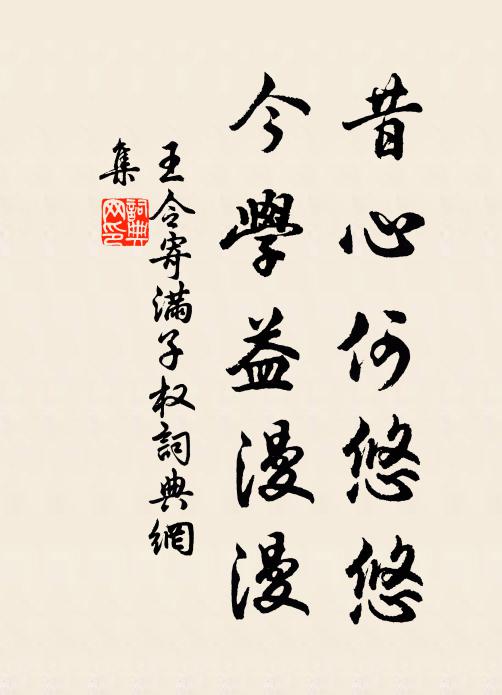 昔心何悠悠
今學益漫漫
王令寄滿子权詞典網
集
詞典
网印